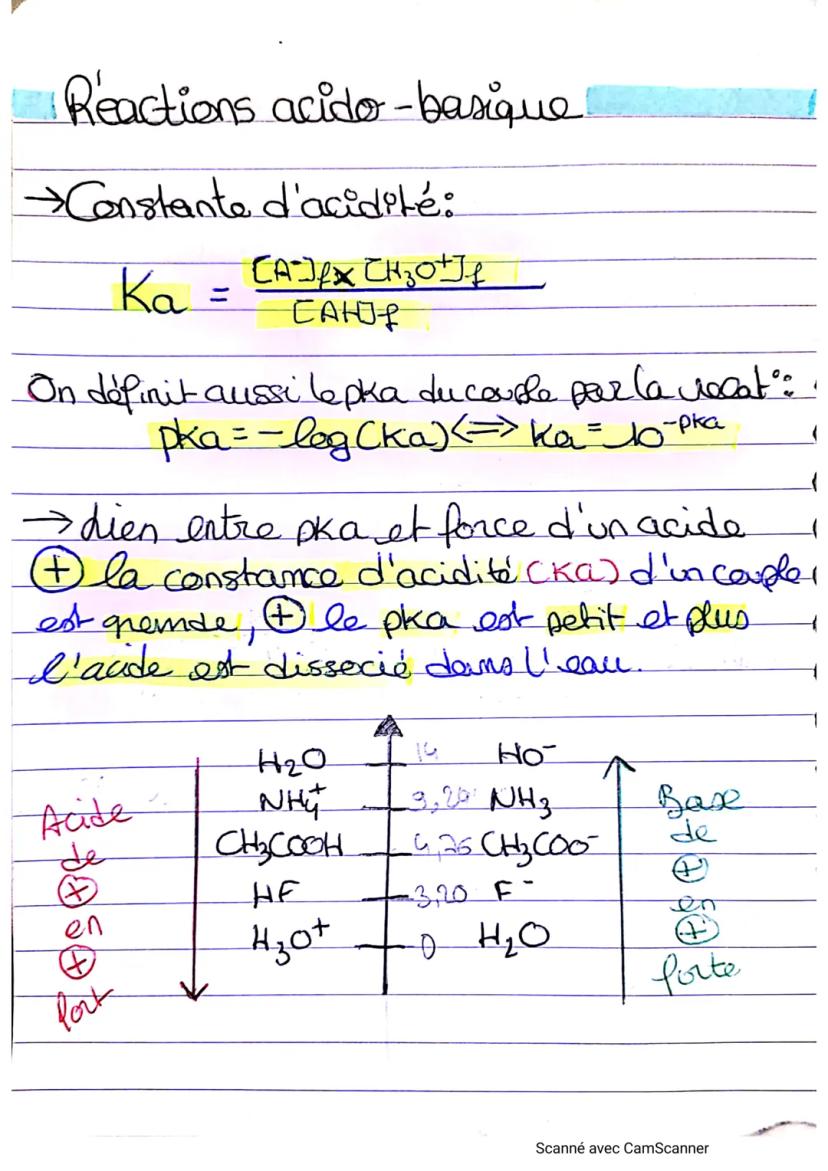 Réactions acido-basique
→ Constante d'acidité:
Ka = [A-]f x [H3O+]f / [AH]f
On définit aussi le pka du couple par la
pka = -log(Ka) <=> Ka = 10^-pka
→ Lien entre pka et force d'un acide
⊕ la constance d'acidité (Ka) d'un couple
est grande, ⊕ le pka est petit et plus
l'acide est dissocié dans l'eau.
H2O 14 HO-
NH4+ 9,20 NH3
CH3COOH 4,75 CH3COO-
HF 3,20 F-
H3O+ 0 H2O
Acide
de
⊕
en
⊕
fort
Base
de
⊕
en
⊕
forte
Scanné avec CamScanner